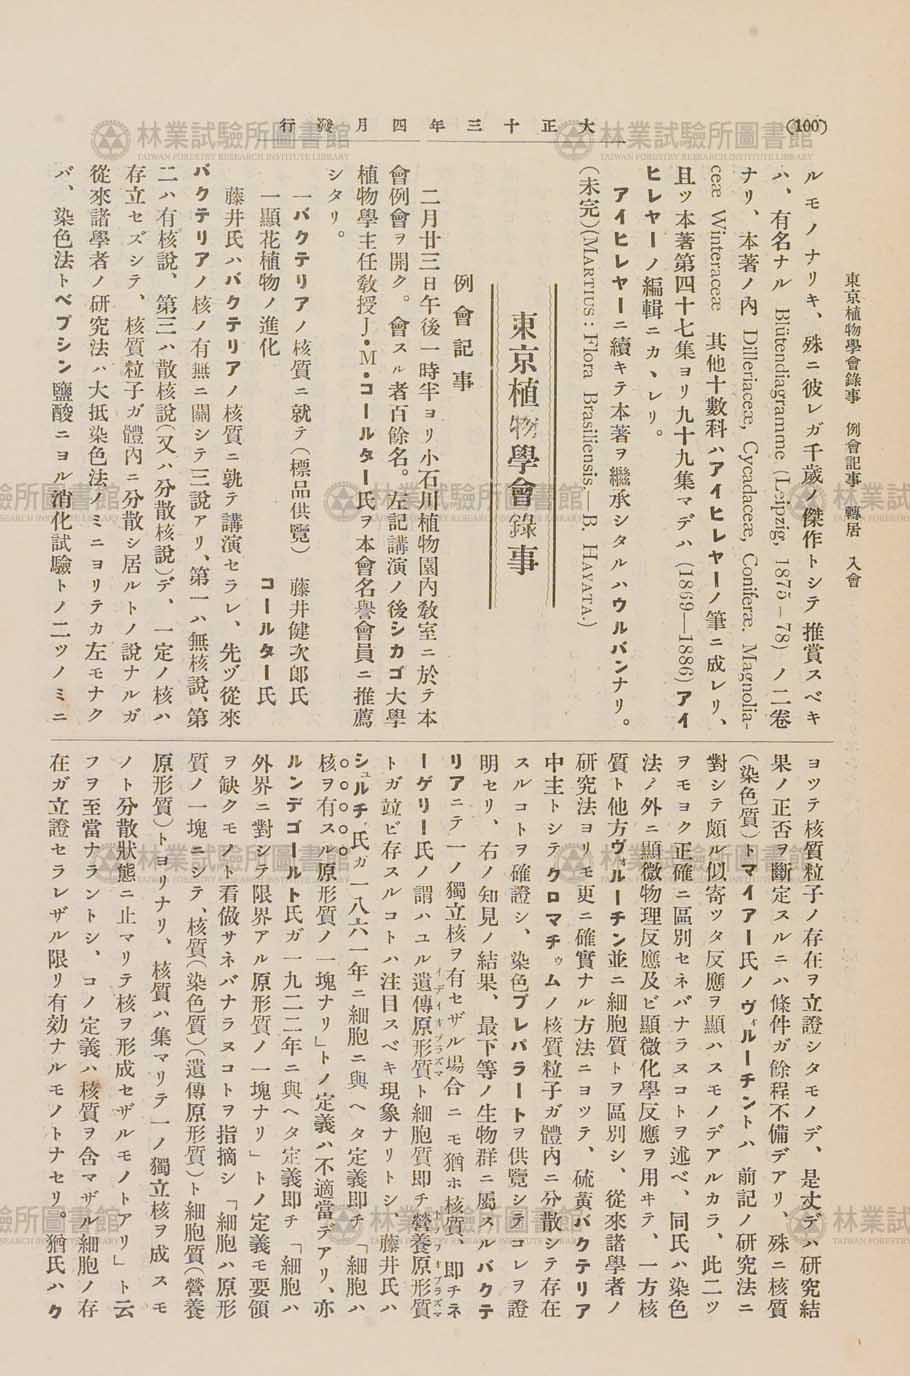 (100)
大正十三年四月發行
東京植物學會錄事 例會記事 轉居 入會
ルモノナリキ、殊ニ彼レガ千歲ノ傑作トシテ推賞スベキ
ハ、有名ナル Blütendiagramme (Leipzig, 1875–78) ノ二卷
ナリ、本著ノ內 Dilleriaceæ, Cycadaceæ, Coniferæ, Magnolia-
ceæ Winteraceæ 其他十數科ハアイヒレヤーノ筆ニ成レリ、
且ツ本著第四十七集ヨリ九十九集マデハ (1869—1886) アイ
ヒレヤーノ編輯ニカヽレリ。
アイヒレヤーニ續キテ本著ヲ繼承シタルハウルバンナリ。
(未完)(MARTIUS: Flora Brasiliensis, B. HAYATA.)
東京植物學會錄事
例會記事
二月廿三日午後一時半ヨリ小石川植物園內敎室ニ於テ本
會例會ヲ開ク。會スル者百餘名。左記講演ノ後シカゴ大學
植物學主任敎授J・M・コールター氏ヲ本會名譽會員ニ推薦
シタリ。
一バクテリアノ核質ニ就テ(標品供覽) 藤井健次郞氏
一顯花植物ノ進化 コールター氏
藤井氏ハバクテリアノ核質ニ就テ講演セラレ、先ヅ從來
バクテリアノ核ノ有無ニ關シテ三說アリ、第一ハ無核說、第
二ハ有核說、第三ハ散核說(又ハ分散核說)デ、一定ノ核ハ
存立セズシテ、核質粒子ガ體內ニ分散シ居ルトノ說ナルガ
從來諸學者ノ硏究法ハ大抵染色法ノミニヨリテカ左モナク
バ、染色法トペプシン鹽酸ニヨル消化試驗トノ二ツノミニ
ヨツテ核質粒子ノ存在ヲ立證シタモノデ、是丈デハ硏究結
果ノ正否ヲ斷定スルニハ條件ガ餘程不備デアリ、殊ニ核質
(染色質)トマイアー氏ノヴィルーチントハ前記ノ硏究法ニ
對シテ頗ル似寄ツタ反應ヲ顯ハスモノデアルカラ、此二ツ
ヲモヨク正確ニ區別セネバナラヌコトヲ述ベ、同氏ハ染色
法ノ外ニ顯微物理反應及ビ顯微化學反應ヲ用ヰテ、一方核
質ト他方ヴォルーチン並ニ細胞質トヲ區別シ、從來諸學者ノ
硏究法ヨリモ更ニ確實ナル方法ニヨツテ、硫黃バクテリア
中主トシテクロマチゥムノ核質粒子ガ體內ニ分散シテ存在
スルコトヲ確證シ、染色プレパラートヲ供覽シテコレヲ證
明セリ、右ノ知見ノ結果、最下等ノ生物群ニ屬スルバクテ
リアニテ一ノ獨立核ヲ有セザル場合ニモ猶ホ核質、卽チネ
ーゲリー氏ノ謂ハユル遺傳原形質ト細胞質卽チ營養原形質
トガ竝ビ存スルコトハ注目スベキ現象ナリトシ、藤井氏ハ
シュルチ氏ガ一八六一年ニ細胞ニ與ヘタ定義卽チ「細胞ハ
核ヲ有スル原形質ノ一塊ナリ」トノ定義ハ不適當デアリ、亦
ルンデゴールト氏ガ一九二二年ニ與ヘタ定義卽チ「細胞ハ
外界ニ對シテ限界アル原形質ノ一塊ナリ」トノ定義モ要領
ヲ缺クモノト看做サネバナラヌコトヲ指摘シ「細胞ハ原形
質ノ一塊ニシテ、核質(染色質)(遺傳原形質)ト細胞質(營養
原形質)トヨリナリ、核質ハ集マリテ一ノ獨立核ヲ成スモ
ノト分散狀態ニ止マリテ核ヲ形成セザルモノトアリ」ト云
フヲ至當ナラントシ、コノ定義ハ核質ヲ含マザル細胞ノ存
在ガ立證セラレザル限リ有効ナルモノトナセリ。猶氏ハク
林業試驗所圖書館
TAIWAN FORESTRY RESEARCH INSTITUTE LIBRARY